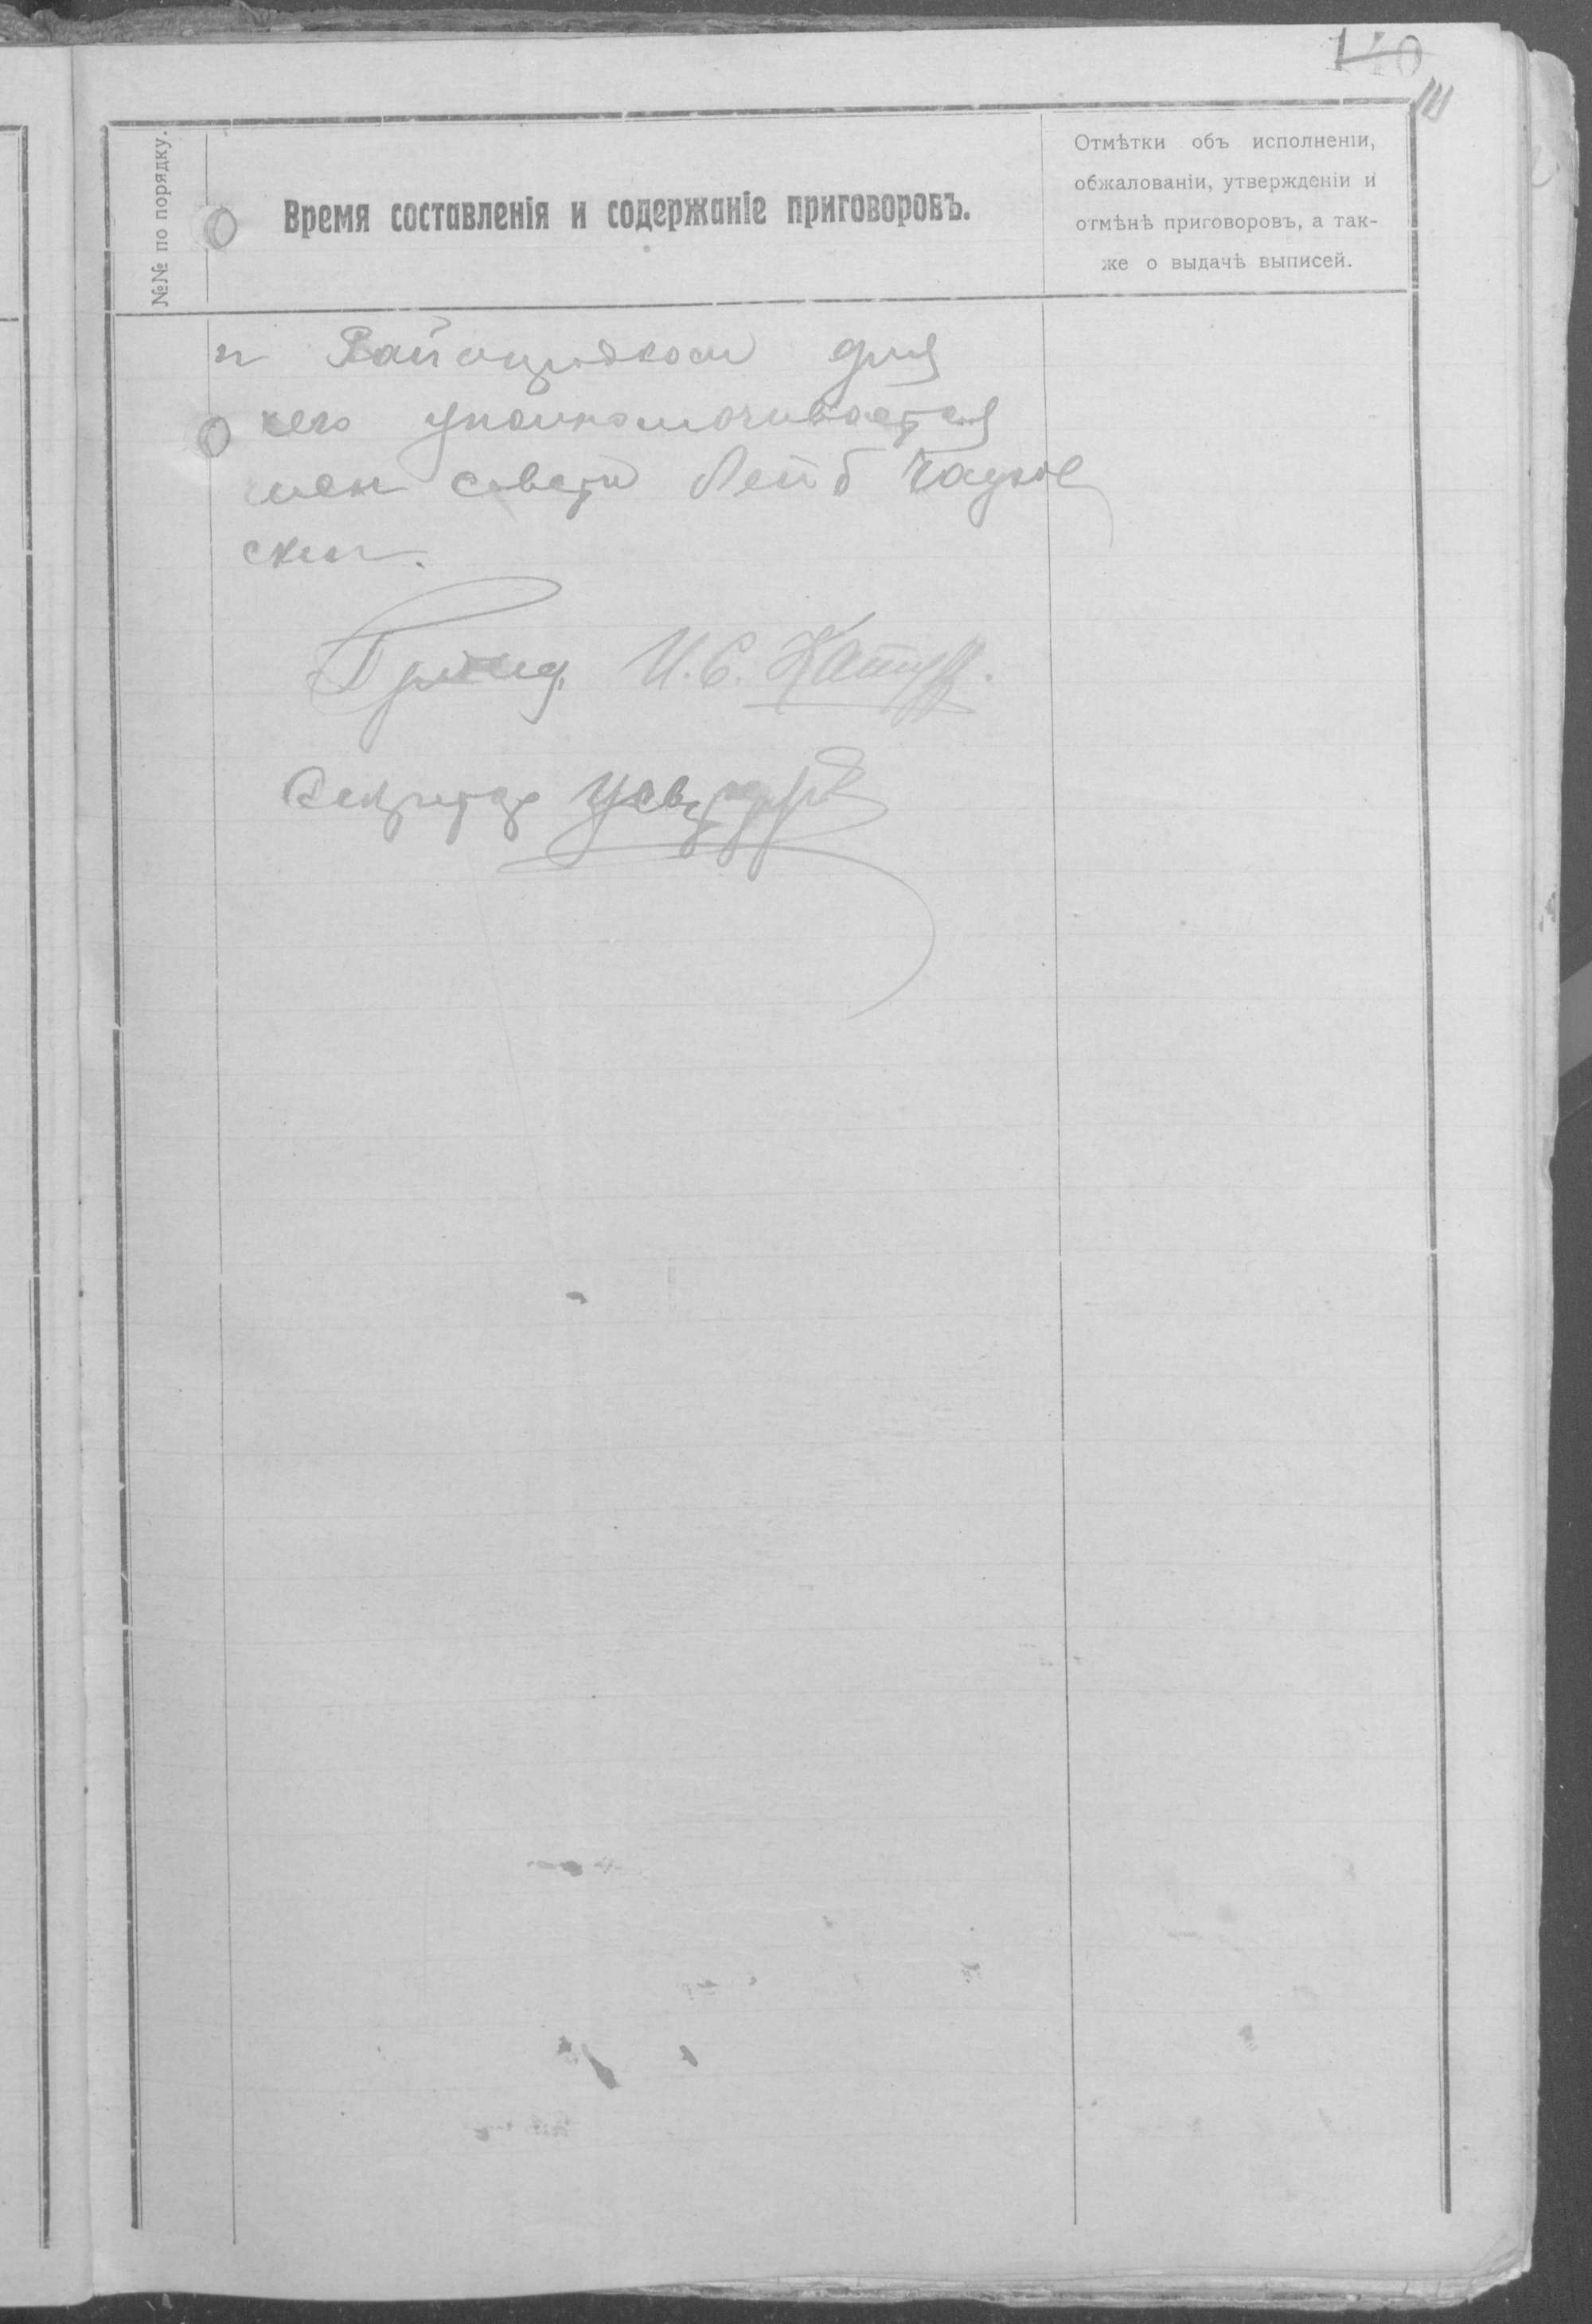 140
111
№№ по порядку.
Время составленія и содержаніе приговоровъ.
Отмѣтки объ исполненіи,
обжалованіи, утвержденіи и
отмѣнѣ приговоровъ, а так-
же о выдачѣ выписей.
и для
чего уполномочивается
член совета Лейб
ски.
И. С.
Секретар